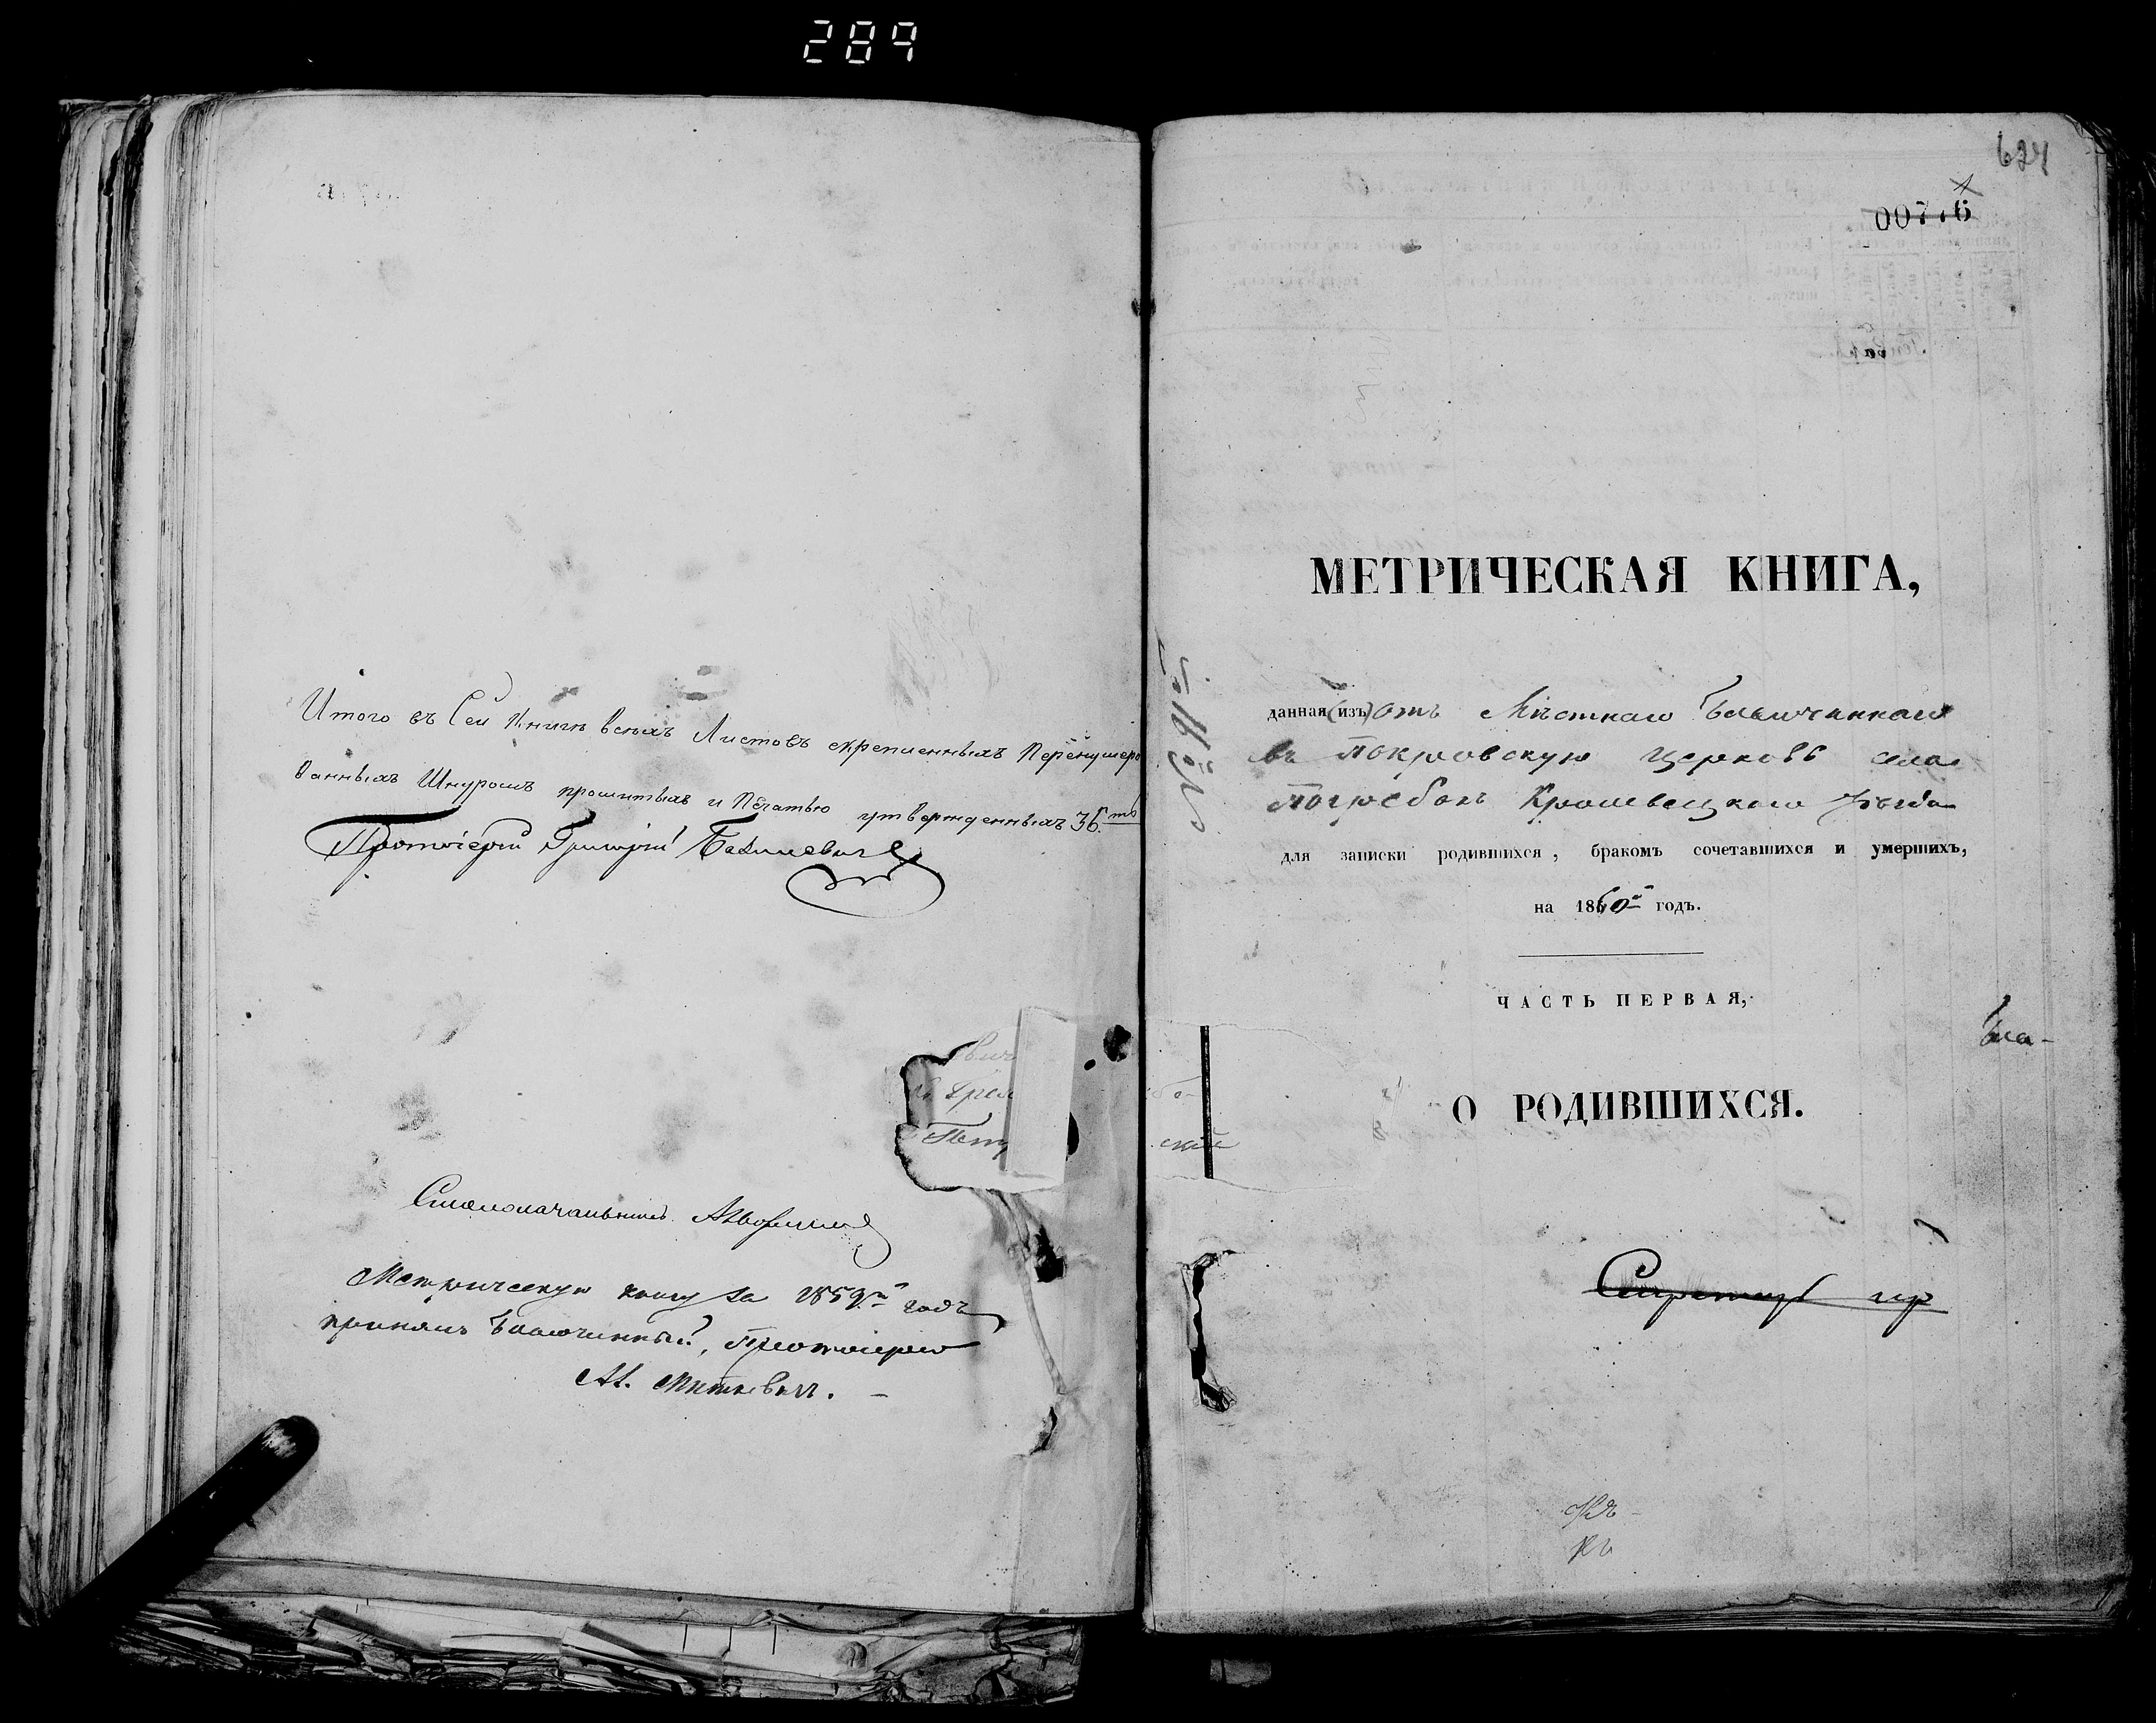 289
Итого въ Сей Книгѣ всѣхъ Листовъ скрепленныхъ Перенумеро
ванныхъ Шнуромъ прошитыхъ и Печатью утвержденныхъ 36.ть
Протоіерей Григорій Базилевичъ
Столоначальникъ
Метрическую книгу за 1859й годъ
принялъ Благочинный, Протоіерей
Ал. Миткевич. –
624
1
00776
МЕТРИЧЕСКАЯ КНИГА,
данная (изъ) отъ Мѣстнаго Благочиннаго
въ Покровскую церковь села
Погребокъ Кролевецкаго уѣзда
для записки родившихся, бракомъ сочетавшихся и умершихъ,
на 1860й годъ.
ЧАСТЬ ПЕРВАЯ,
О РОДИВШИХСЯ.
Бла-
скій
Секретарь